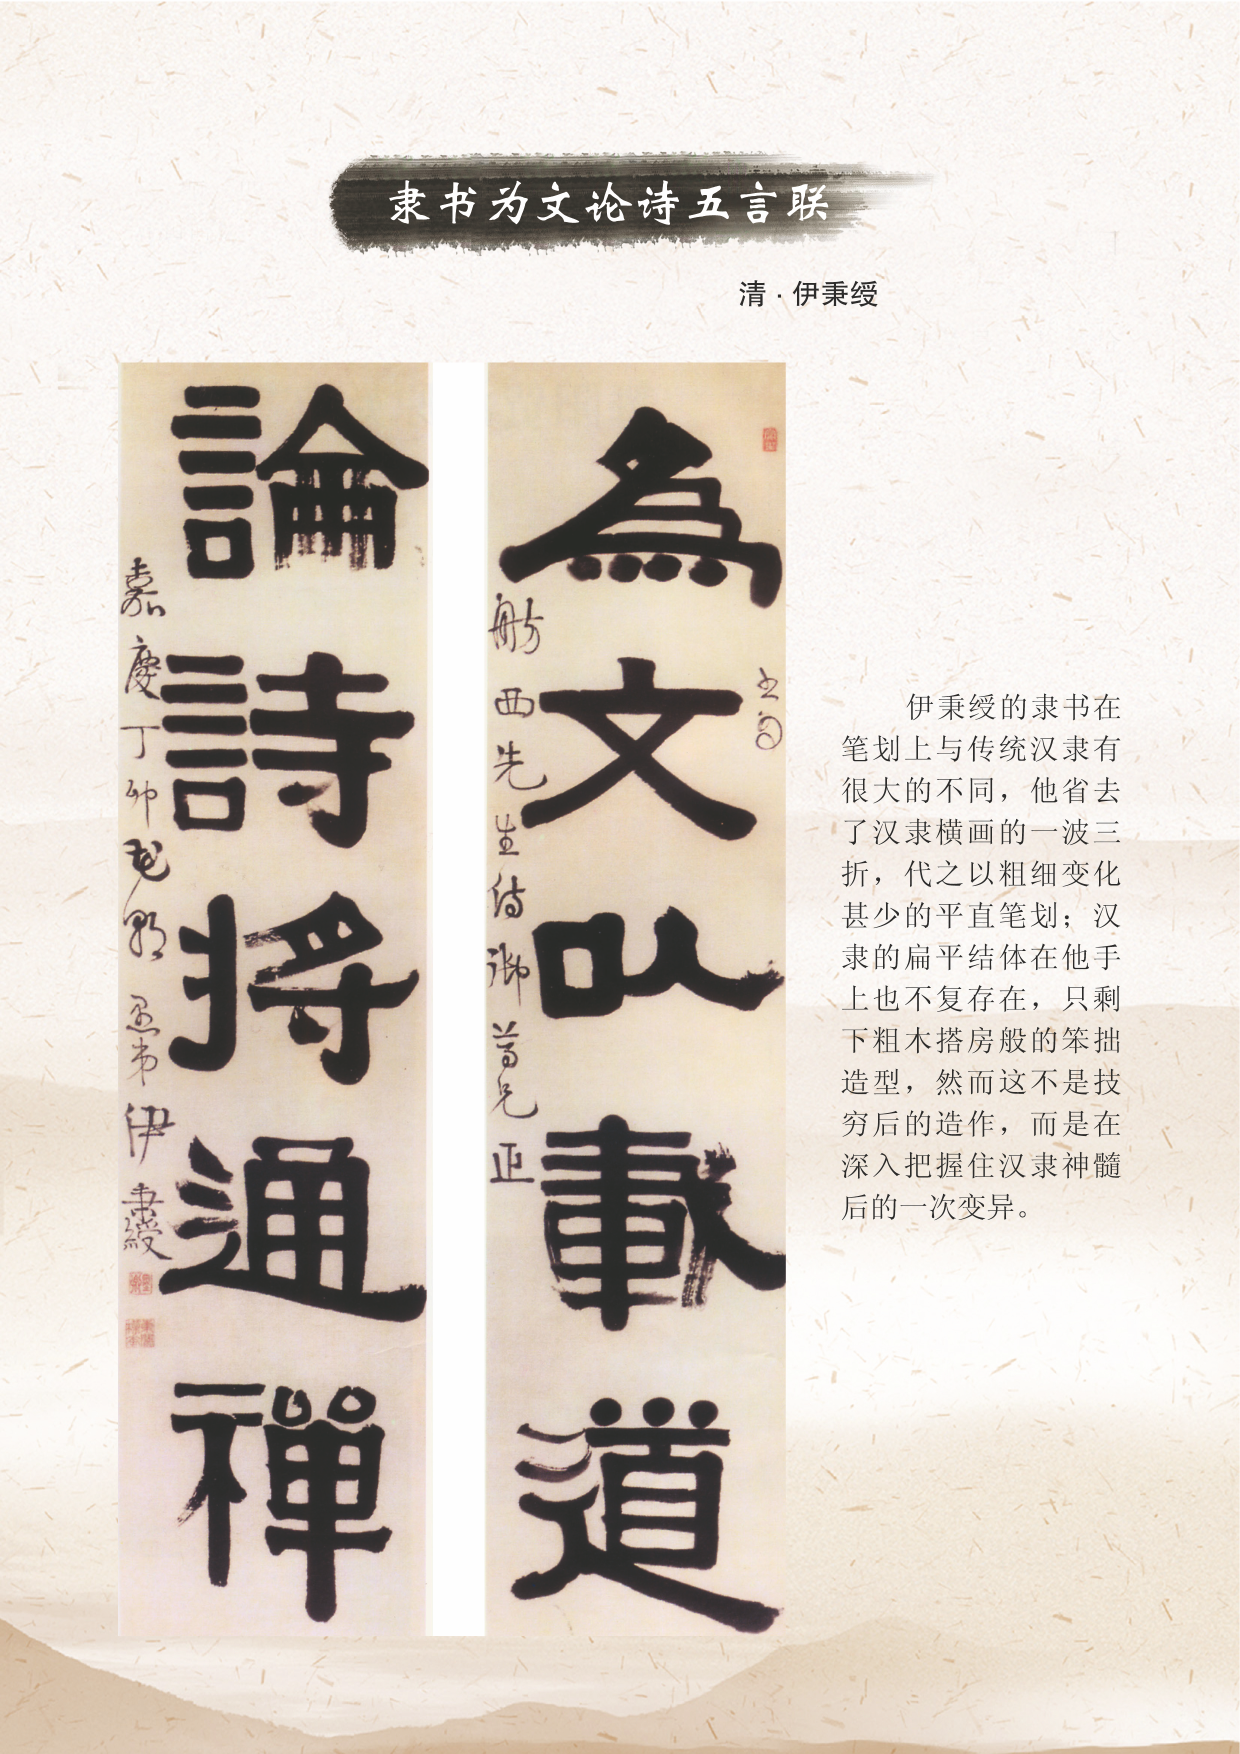 隶书为文论诗五言联
清·伊秉绶
為文以載道
舫西先生侍御茂兄正
論詩將通禪
嘉慶丁卯花朝愚弟伊秉綬
伊秉绶的隶书在
笔划上与传统汉隶有
很大的不同，他省去
了汉隶横画的一波三
折，代之以粗细变化
甚少的平直笔划；汉
隶的扁平结体在他手
上也不复存在，只剩
下粗木搭房般的笨拙
造型，然而这不是技
穷后的造作，而是在
深入把握住汉隶神髓
后的一次变异。